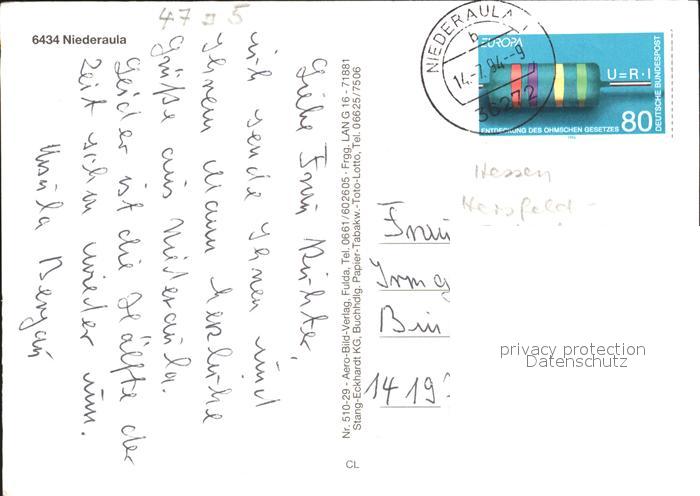 47 5
6434 Niederaula
Liebe Frau Richter,
ich sende Ihnen und
Ihrem Mann herzliche
Grüße aus Niederaula.
Leider ist die Hälfte der
Zeit schon wieder um.
Ursula
Nr. 510-29 - Aero-Bild-Verlag, Fulda, Tel. 0661/602605 · Frgg. LAN G 16 - 71881
Stang-Eckhardt KG, Buchhdlg. Papier-Tabakw.-Toto-Lotto, Tel. 06625/7506
CL
NIEDERAULA 1
b
14.-7.94-9
36272
EUROPA
U=R·I
ENTDECKUNG DES OHMSCHEN GESETZES
80
DEUTSCHE BUNDESPOST
1994
Hessen
Hersfeld-
Frau
Irmg
1419
privacy protection
Datenschutz